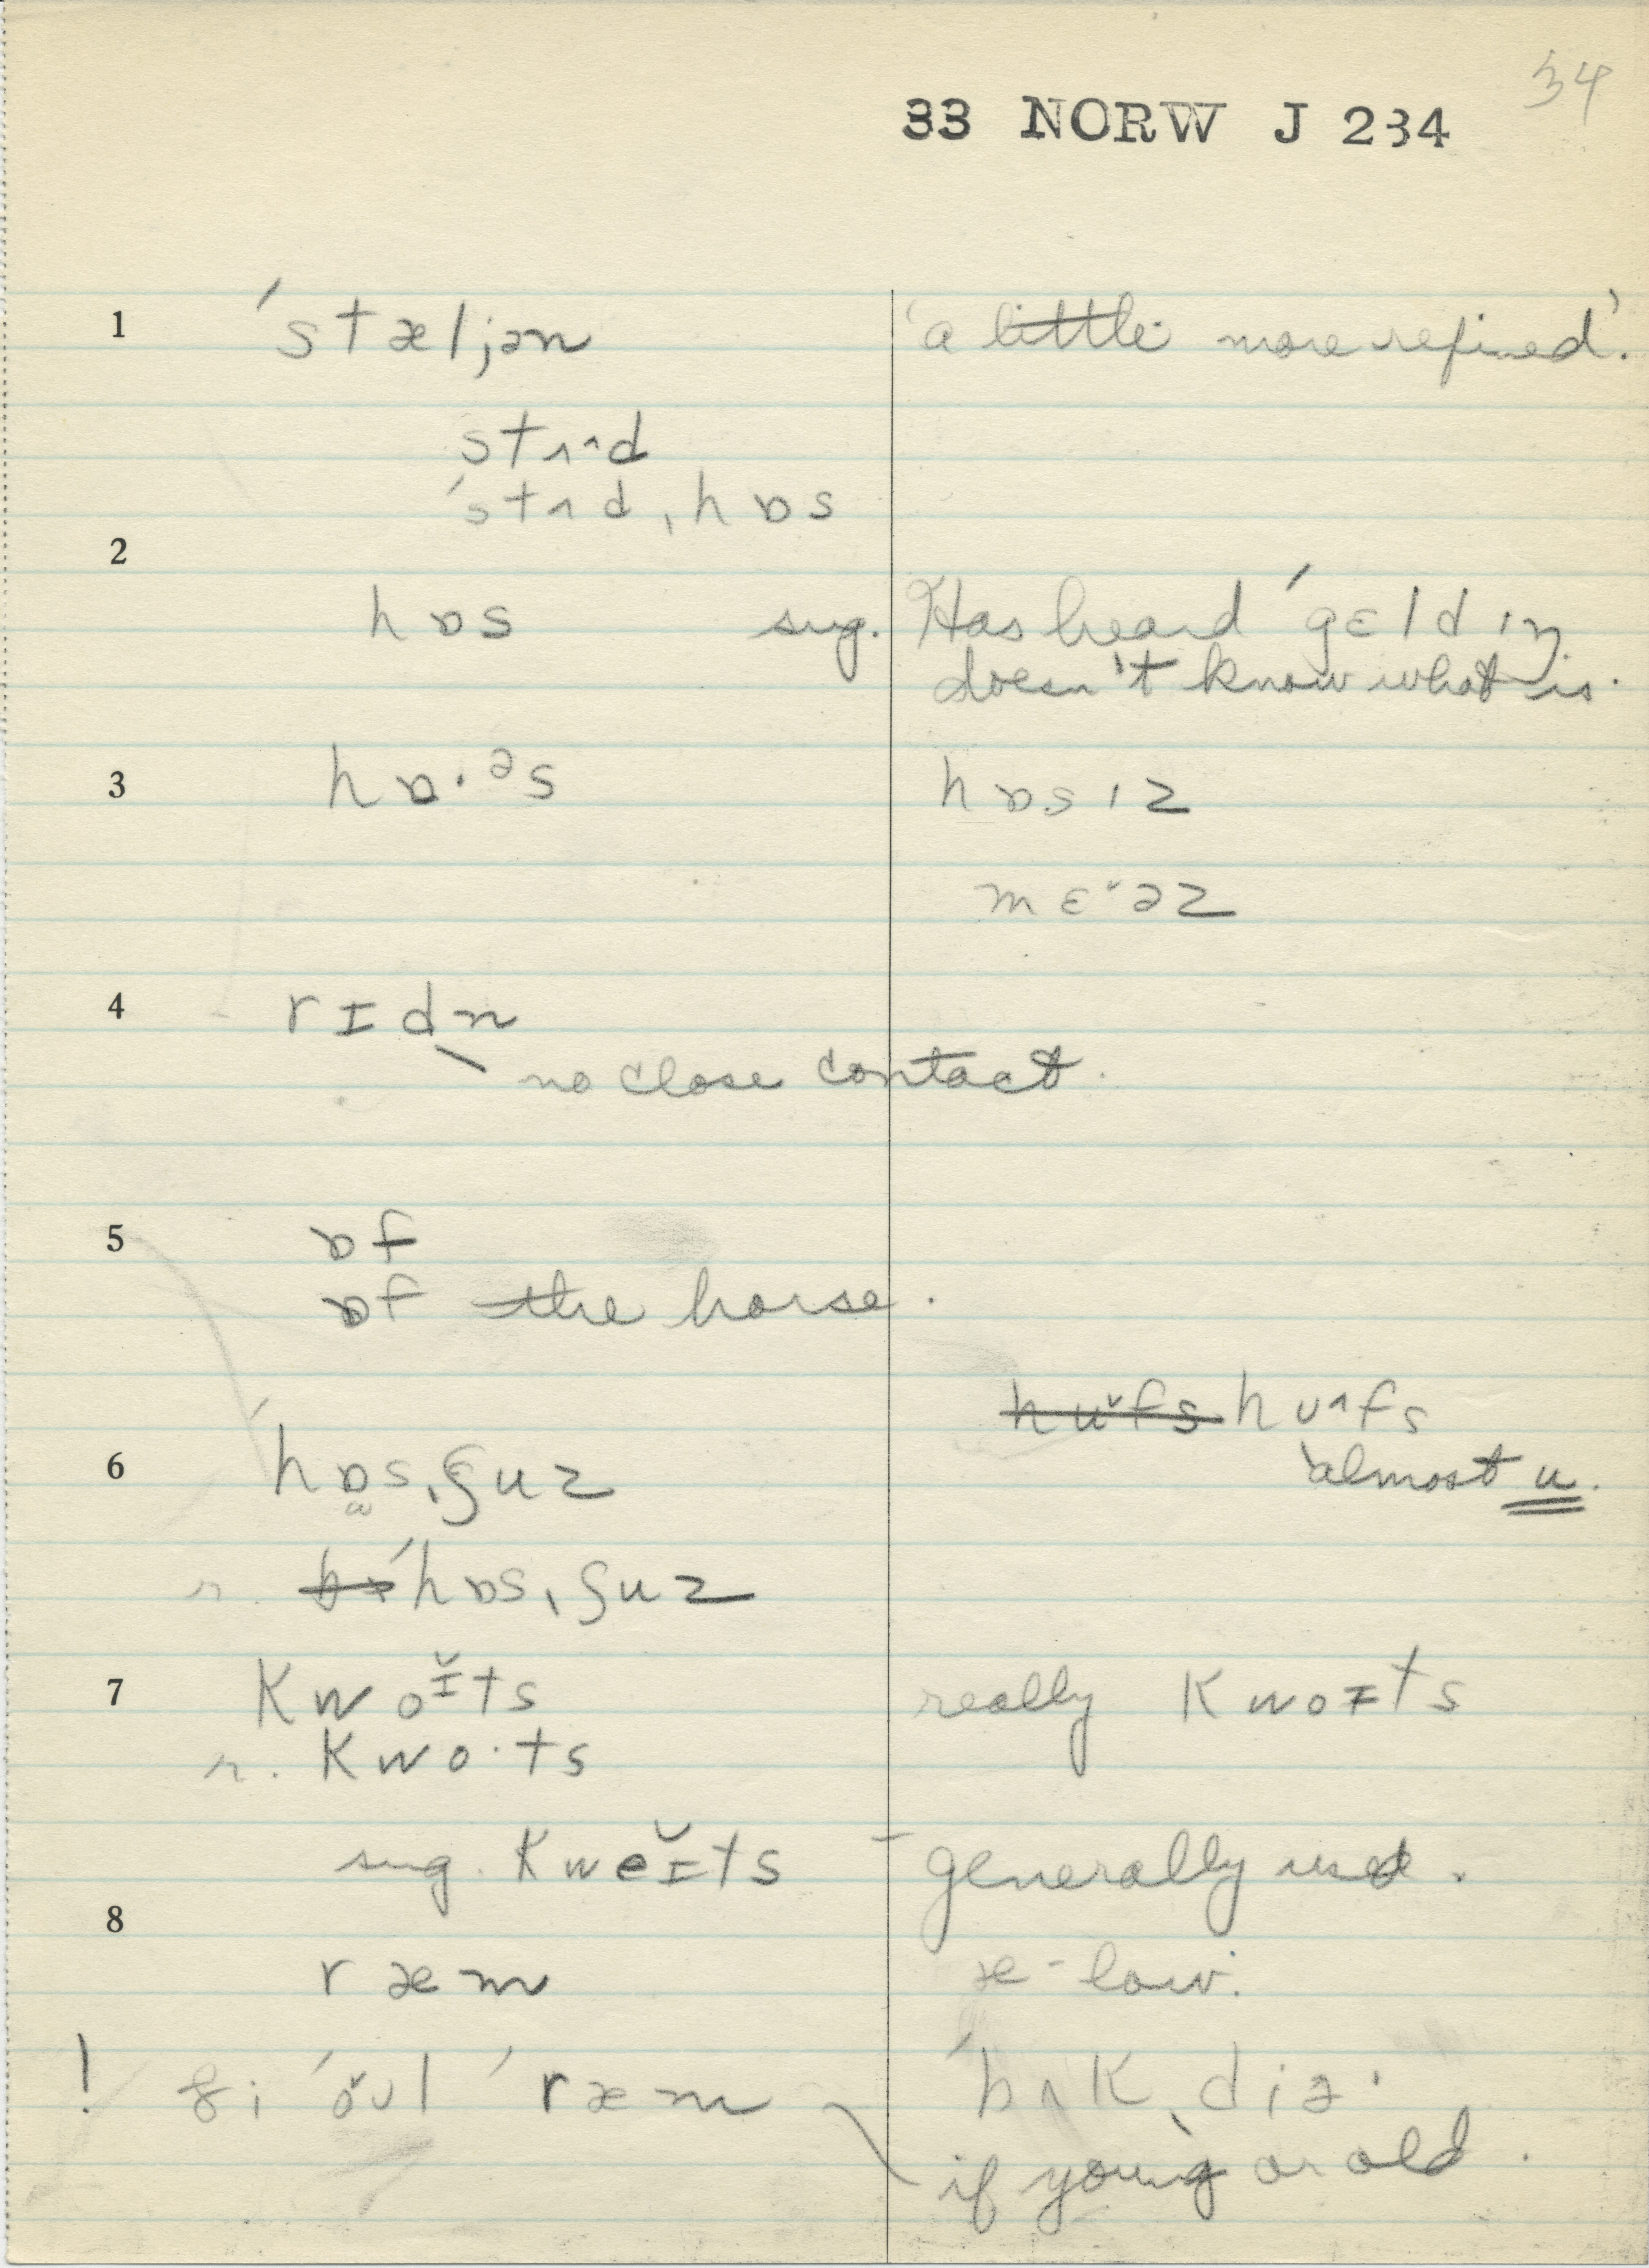 34
33 NORW J 234
1 ˈstæljən 'a little more refined'.
stʌ˄d
ˈstʌdˌhɒs
2
hɒs sug. Has heard ˈgɛldɪŋ
doesn't know what is.
3 hɒ·ᵊs hɒsɪz
mɛ˅əz
4 rɪdn
no close contact.
5 ɒf
ɒf the horse.
hu˅fs hʊ˄fs
6 ˈhɒsˌʃuz almost u.
r. ˈhɒsˌʃuz
7 kwoɪ̆ts really kwoɪts
r. kwo·ts
sug. kweɪ̆ts – generally used.
8
ræm æ - low.
! ˈræm ˈbʌkˌdiə·
if young or old.